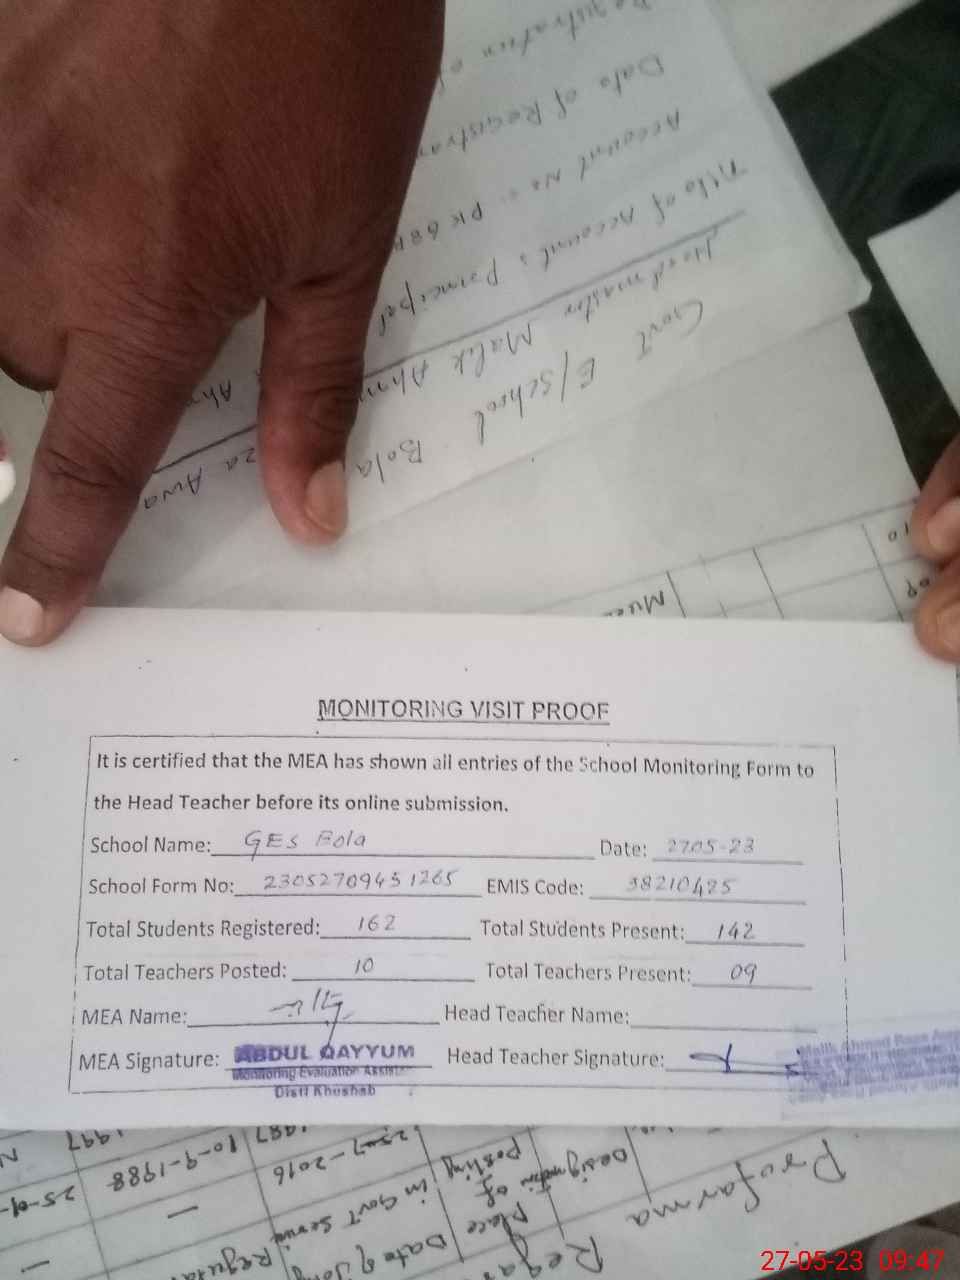 Registration
Date of Registra
Account No :- PK68
Title of Account : Principal
Headmaster Malik Ahm
za Awa
Govt E/School Bola
10
09
MONITORING VISIT PROOF
It is certified that the MEA has shown all entries of the School Monitoring Form to
the Head Teacher before its online submission.
School Name: GES Bola Date: 2705-23
School Form No: 23052709451265 EMIS Code: 38210425
Total Students Registered: 162 Total Students Present: 142
Total Teachers Posted: 10 Total Teachers Present: 09
MEA Name: Head Teacher Name:
MEA Signature: ABDUL QAYYUM Head Teacher Signature:
Monitoring Evaluation Assist
Distt Khushab
Malik Ahmed Raza
Proforma
Designation
Place of posting
Date of Join
in Govt Servi
Regular
25-7-2016
1987
10-9-1988
1997
27-05-23 09:47